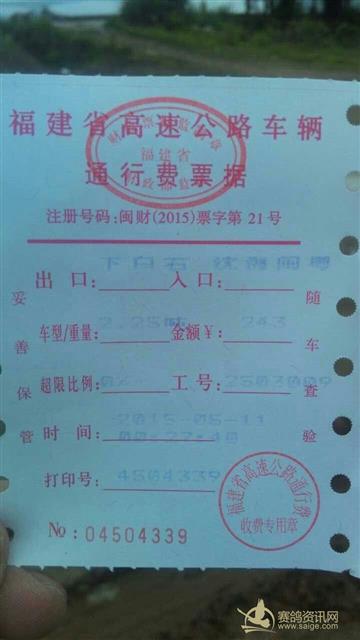 福建省高速公路车辆
财政票据监制章
福建省
财政部监制
通行费票据
注册号码:闽财(2015)票字第21号
下白石
出口: 入口:
2.25吨 243
车型/重量: 金额¥:
0% 2503009
超限比例: 工号:
2015-05-11
00:27:40
时间:
4504339
打印号:
妥善保管
随车查验
福建省高速公路通行费
收费专用章
No: 04504339
赛鸽资讯网
www.saige.com